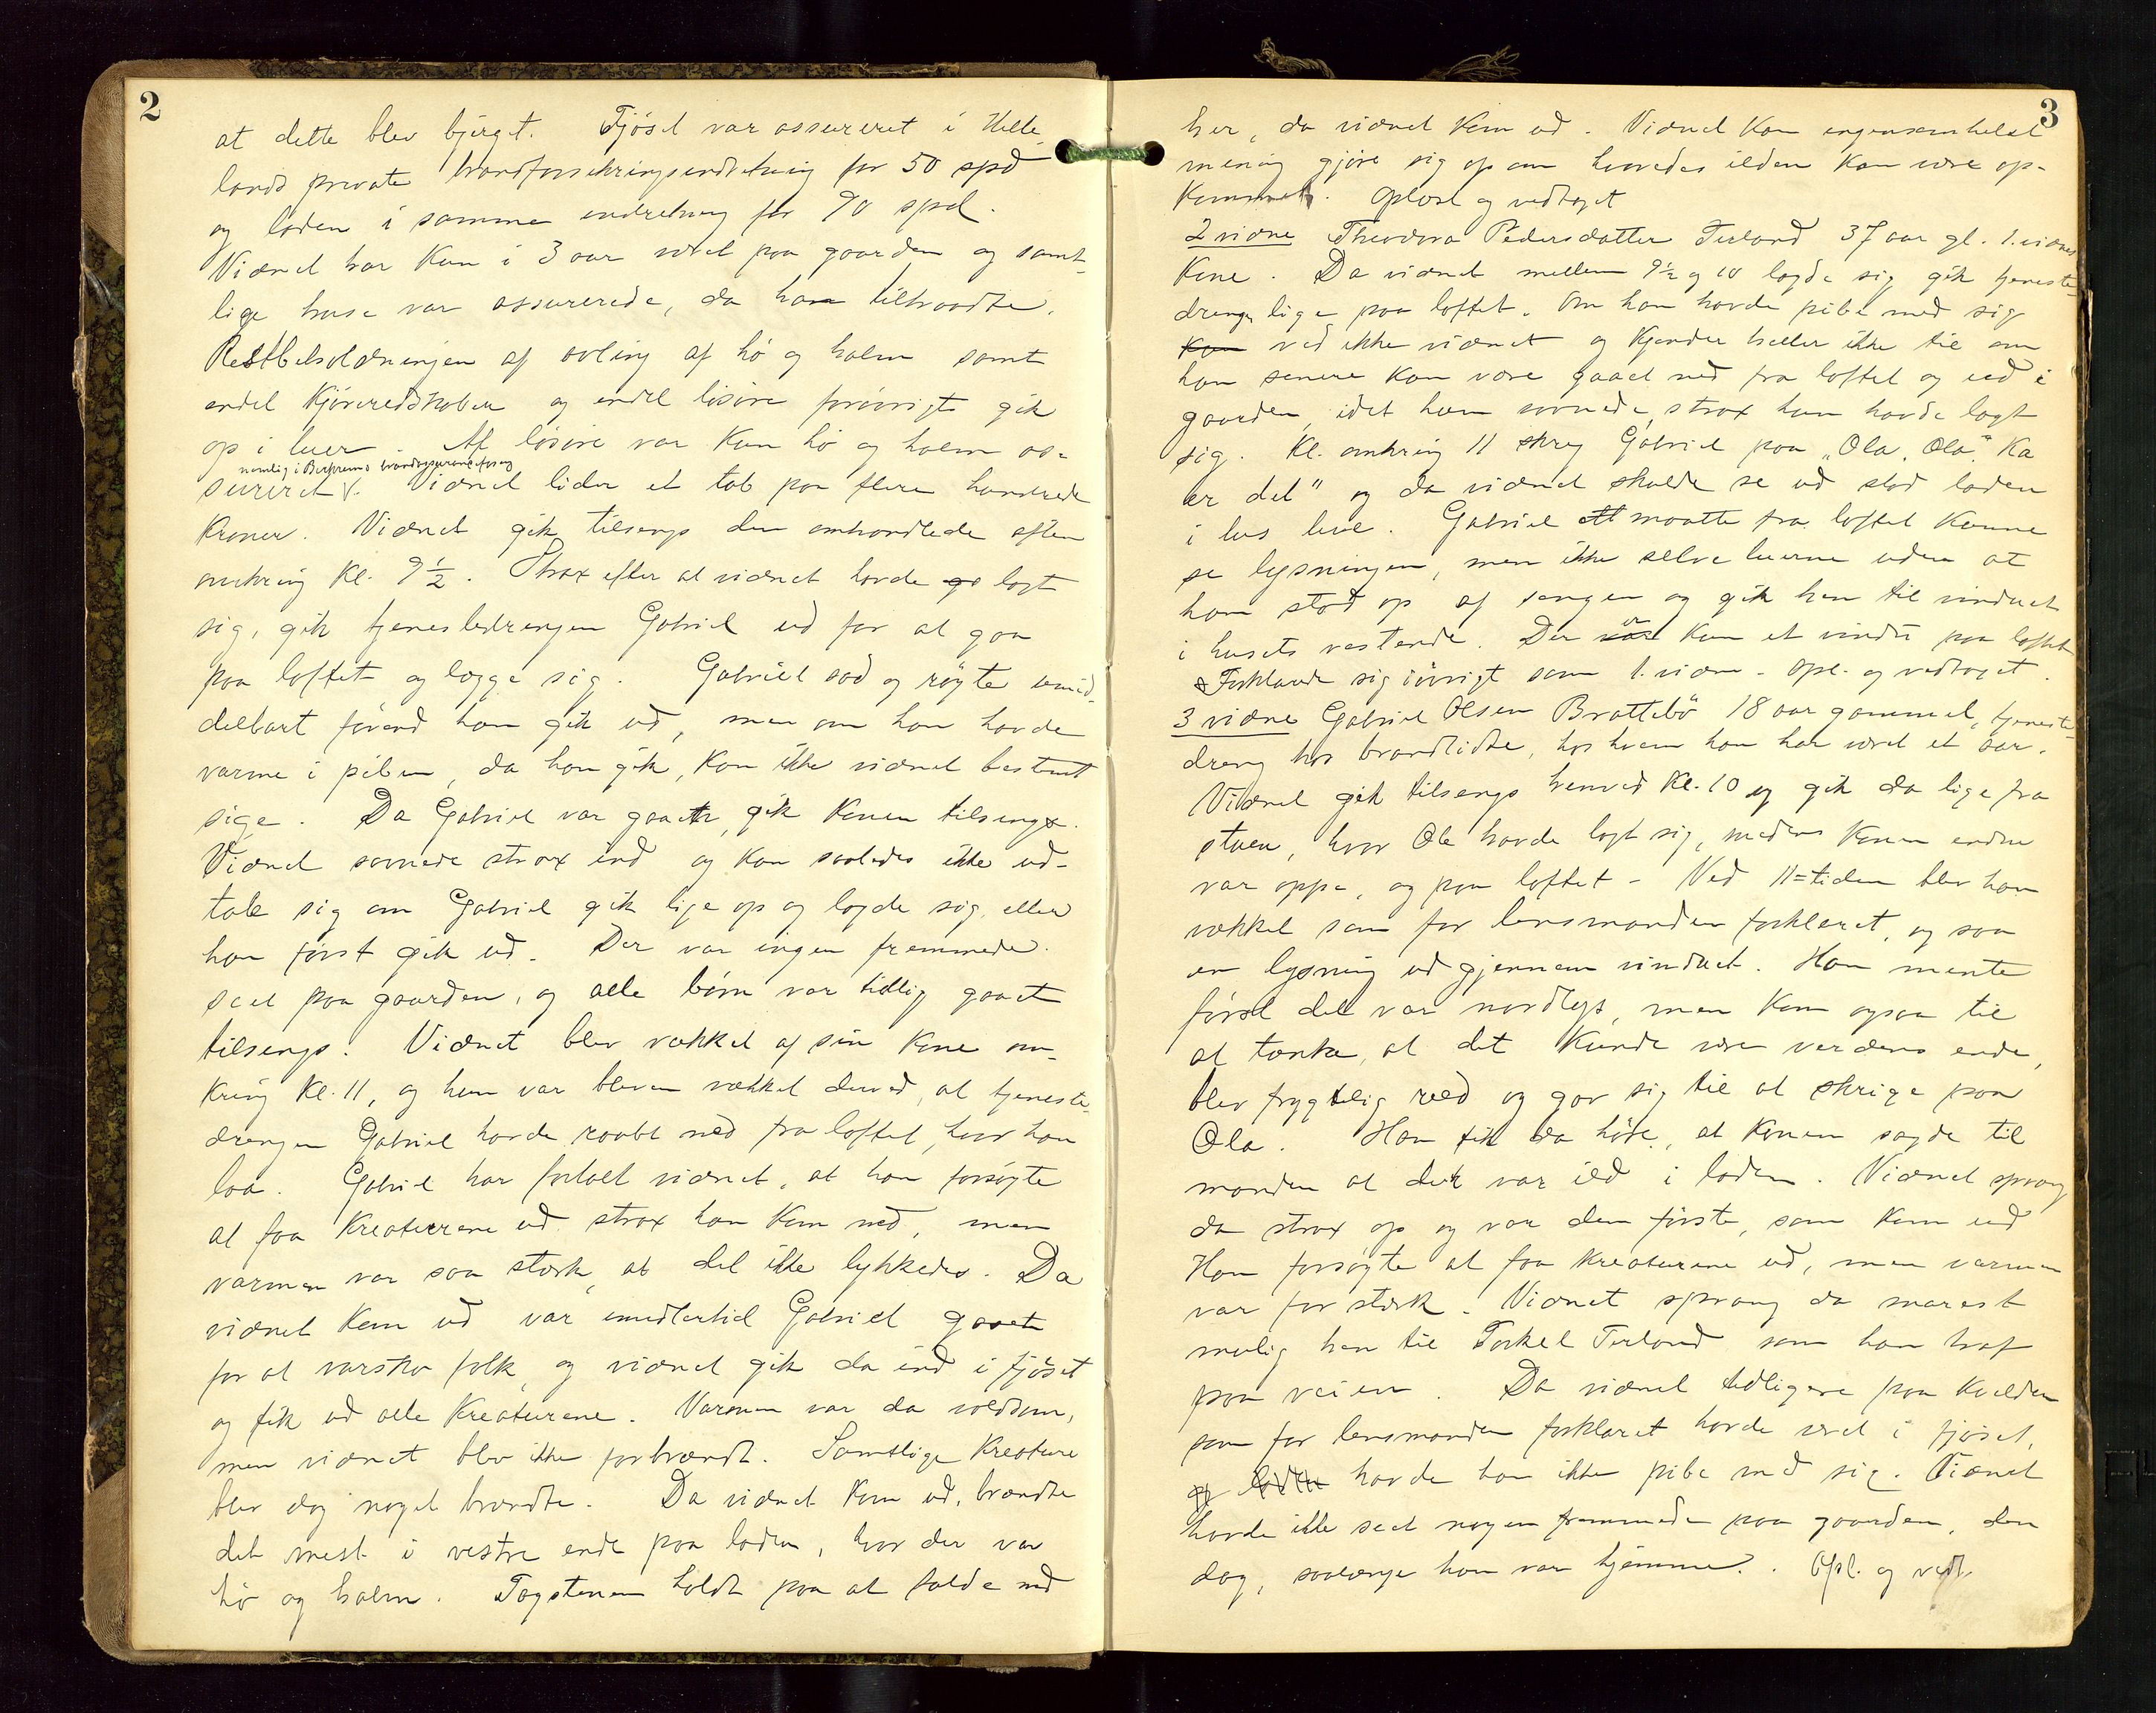 2
at dette blev bjerget. Fjöset var assureret i Helle-
lands private brandforsikringsindretning for 50 spd
og laden i samme indretning for 90 spd.
Vidnet har kun i 3 aar været paa gaarden og samt-
lige huse var assurerede, da han tiltraadte.
Restbeholdningen af avling af hö og halm samt
endel kjöreredskaber og endel lösöre forövrigt gik
op i luer. Af lösöre var kun hö og halm as-
namlig i brandassuranceforening
sureret. Vidnet lider et tab paa flere hundrede
kroner. Vidnet gik tilsengs den omhandlede aften
omkring Kl. 9½. Strax efter at vidnet havde lagt
sig, gik tjenestedrengen Gabriel ud for at gaa
paa loftet og lægge sig. Gabriel sad og rögte umid-
delbart förend han gik ud, men om han havde
varme i piben, da han gik, kan ikke vidnet bestemt
sige. Da Gabriel var gaaet, gik konen tilsengs.
Vidnet sovnede strax ind og kan saaledes ikke ud-
tale sig om Gabriel gik lige op og lagde sig, eller
han först gik ud. Der var ingen fremmede
seet paa gaarden, og alle börn var tidlig gaaet
tilsengs. Vidnet blev vækket af sin kone om-
kring Kl. 11, og hun var bleven vækket derved, at tjeneste-
drengen Gabriel havde raabt ned fra loftet, hvor han
laa. Gabriel har fortalt vidnet, at han forsögte
at faa kreaturene ud strax han kom ned, men
varmen var saa stærk, at det ikke lykkedes. Da
vidnet kom ud var imidlertid Gabriel gaaet
for at varsko folk, og vidnet gik da ind i fjöset
og fik ud alle kreaturene. Varmen var da voldsom,
men vidnet blev ikke forbrændt. Samtlige kreature
blev dog noget brændte. Da vidnet kom ud, brændte
det mest i vestre ende paa laden, hvor der var
hö og halm. Tagstenen holdt paa at falde ned
3
her, da vidnet kom ud. Vidnet kan ingensomhelst
mening gjöre sig op om hvorledes ilden kan være op-
kommet. Oplæst og vedtaget
2 vidne Theodora Pedersdatter Terland 37 aar gl. 1. vidnes
kone. Da vidnet mellem 9½ og 10 lagde sig gik tjeneste-
drengen lige paa loftet. Om han havde pibe med sig
ved ikke vidnet og kjender heller ikke til om
han senere kan være gaaet ned fra loftet og ud i
gaarden, idet hun sovnede, strax hun havde lagt
sig. Kl. omkring 11 skreg Gabriel paa "Ola, Ola". Ka
er det" og da vidnet skulde se ud stod laden
i lys lue. Gabriel maatte fra loftet kunne
se lysningen, men ikke selve luerne uden at
han stod op af sengen og gik hen til vinduet
i husets vestende. Der er kun et vindu paa loftet
Forklarede sig iövrigt som 1. vidne. Opl. og vedtaget.
3 vidne Gabriel Olsen Brattebö 18 aar gammel, tjeneste-
dreng hos brandlidte, hos hvem han har været et aar.
Vidnet gik tilsengs henved Kl. 10 og gik da lige fra
stuen, hvor Ole havde lagt sig, medens konen endnu
var oppe, og paa loftet. Ved 11=tiden blev han
vækket som for lensmanden forklaret, og saa
en lysning ud gjennem vinduet. Han mente
först det var nordlys, men kom ogsaa til
at tænke, at det kunde være verdens ende,
blev frygtelig ræd og gav sig til at skrige paa
Ola. Han fik da höre, at konen sagde til
manden at der var ild i laden. Vidnet sprang
da strax op og var den förste, som kom ud
Han forsögte at faa kreaturene ud, men varmen
var for stærk. Vidnet sprang da snarest
mulig hen til Torkel Terland som han traf
paa veien. Da vidnet tidligere paa kvelden
som for lensmanden forklaret havde været i fjöset,
havde han ikke pibe med sig. Vidnet
havde ikke seet nogen fremmede paa gaarden, den
dag, saalænge han var hjemme. Opl. og vedt.